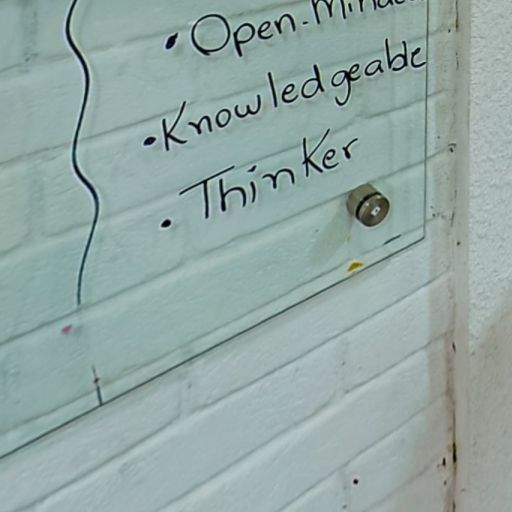 • Open-Minde
• Knowledgeable
• Thinker